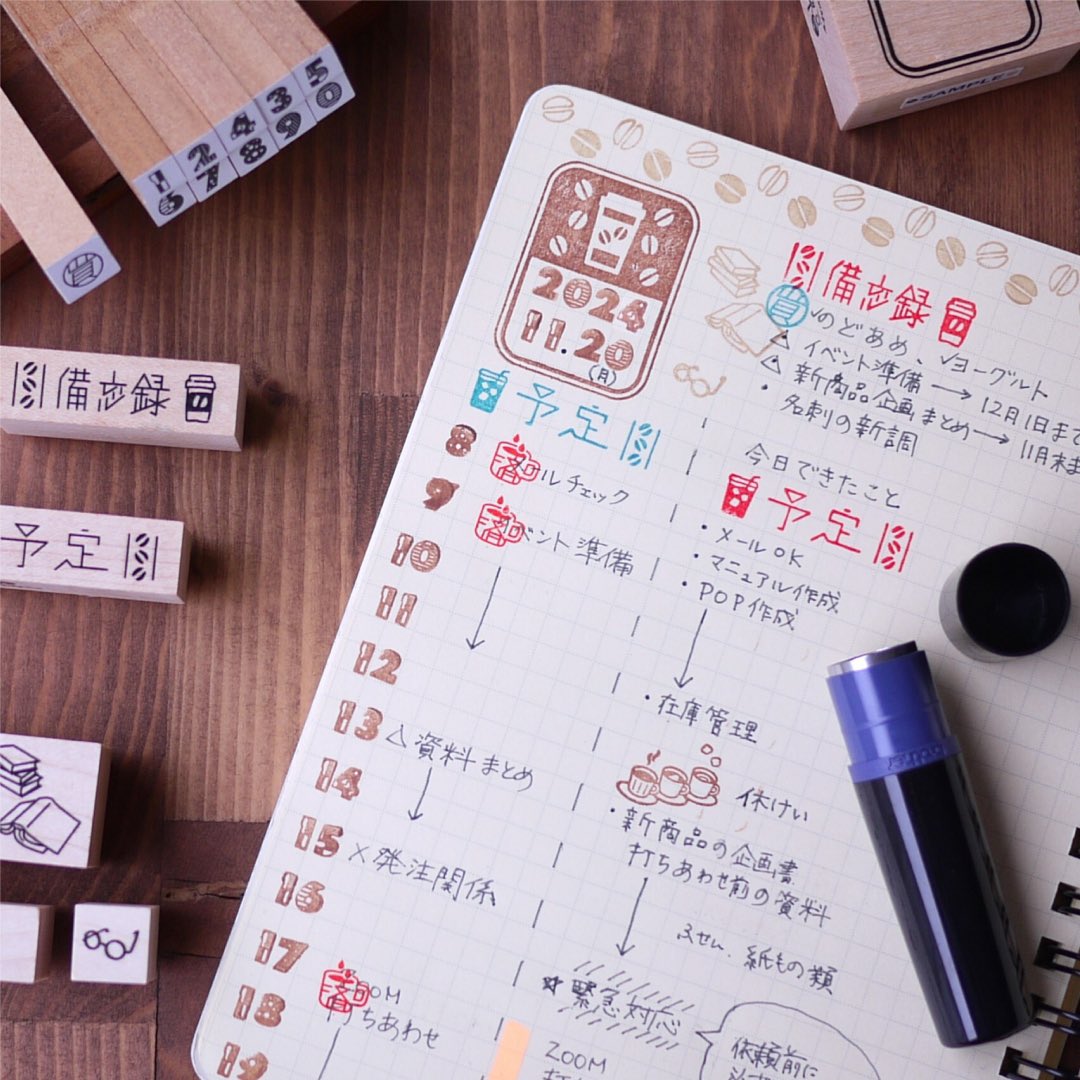 1 2 4 3 5
6 7 8 9 0
買
SAMPLE
備忘録
予定
2024
11.20
(月)
予定
8 メールチェック
9 イベント準備
10
11
12
13 △資料まとめ
14
15 ×発注関係
16
17
18 ZOOM
打ちあわせ
19
備忘録
買 ✓のどあめ、✓ヨーグルト
△イベント準備→12月1日まで
△新商品企画まとめ→11月末ま
・名刺の新調
今日できたこと
予定
・メールOK
・マニュアル作成
・POP作成
・在庫管理
休けい
・新商品の企画書
打ちあわせ前の資料
ふせん、紙もの類
★緊急対応
ZOOM
依頼前に